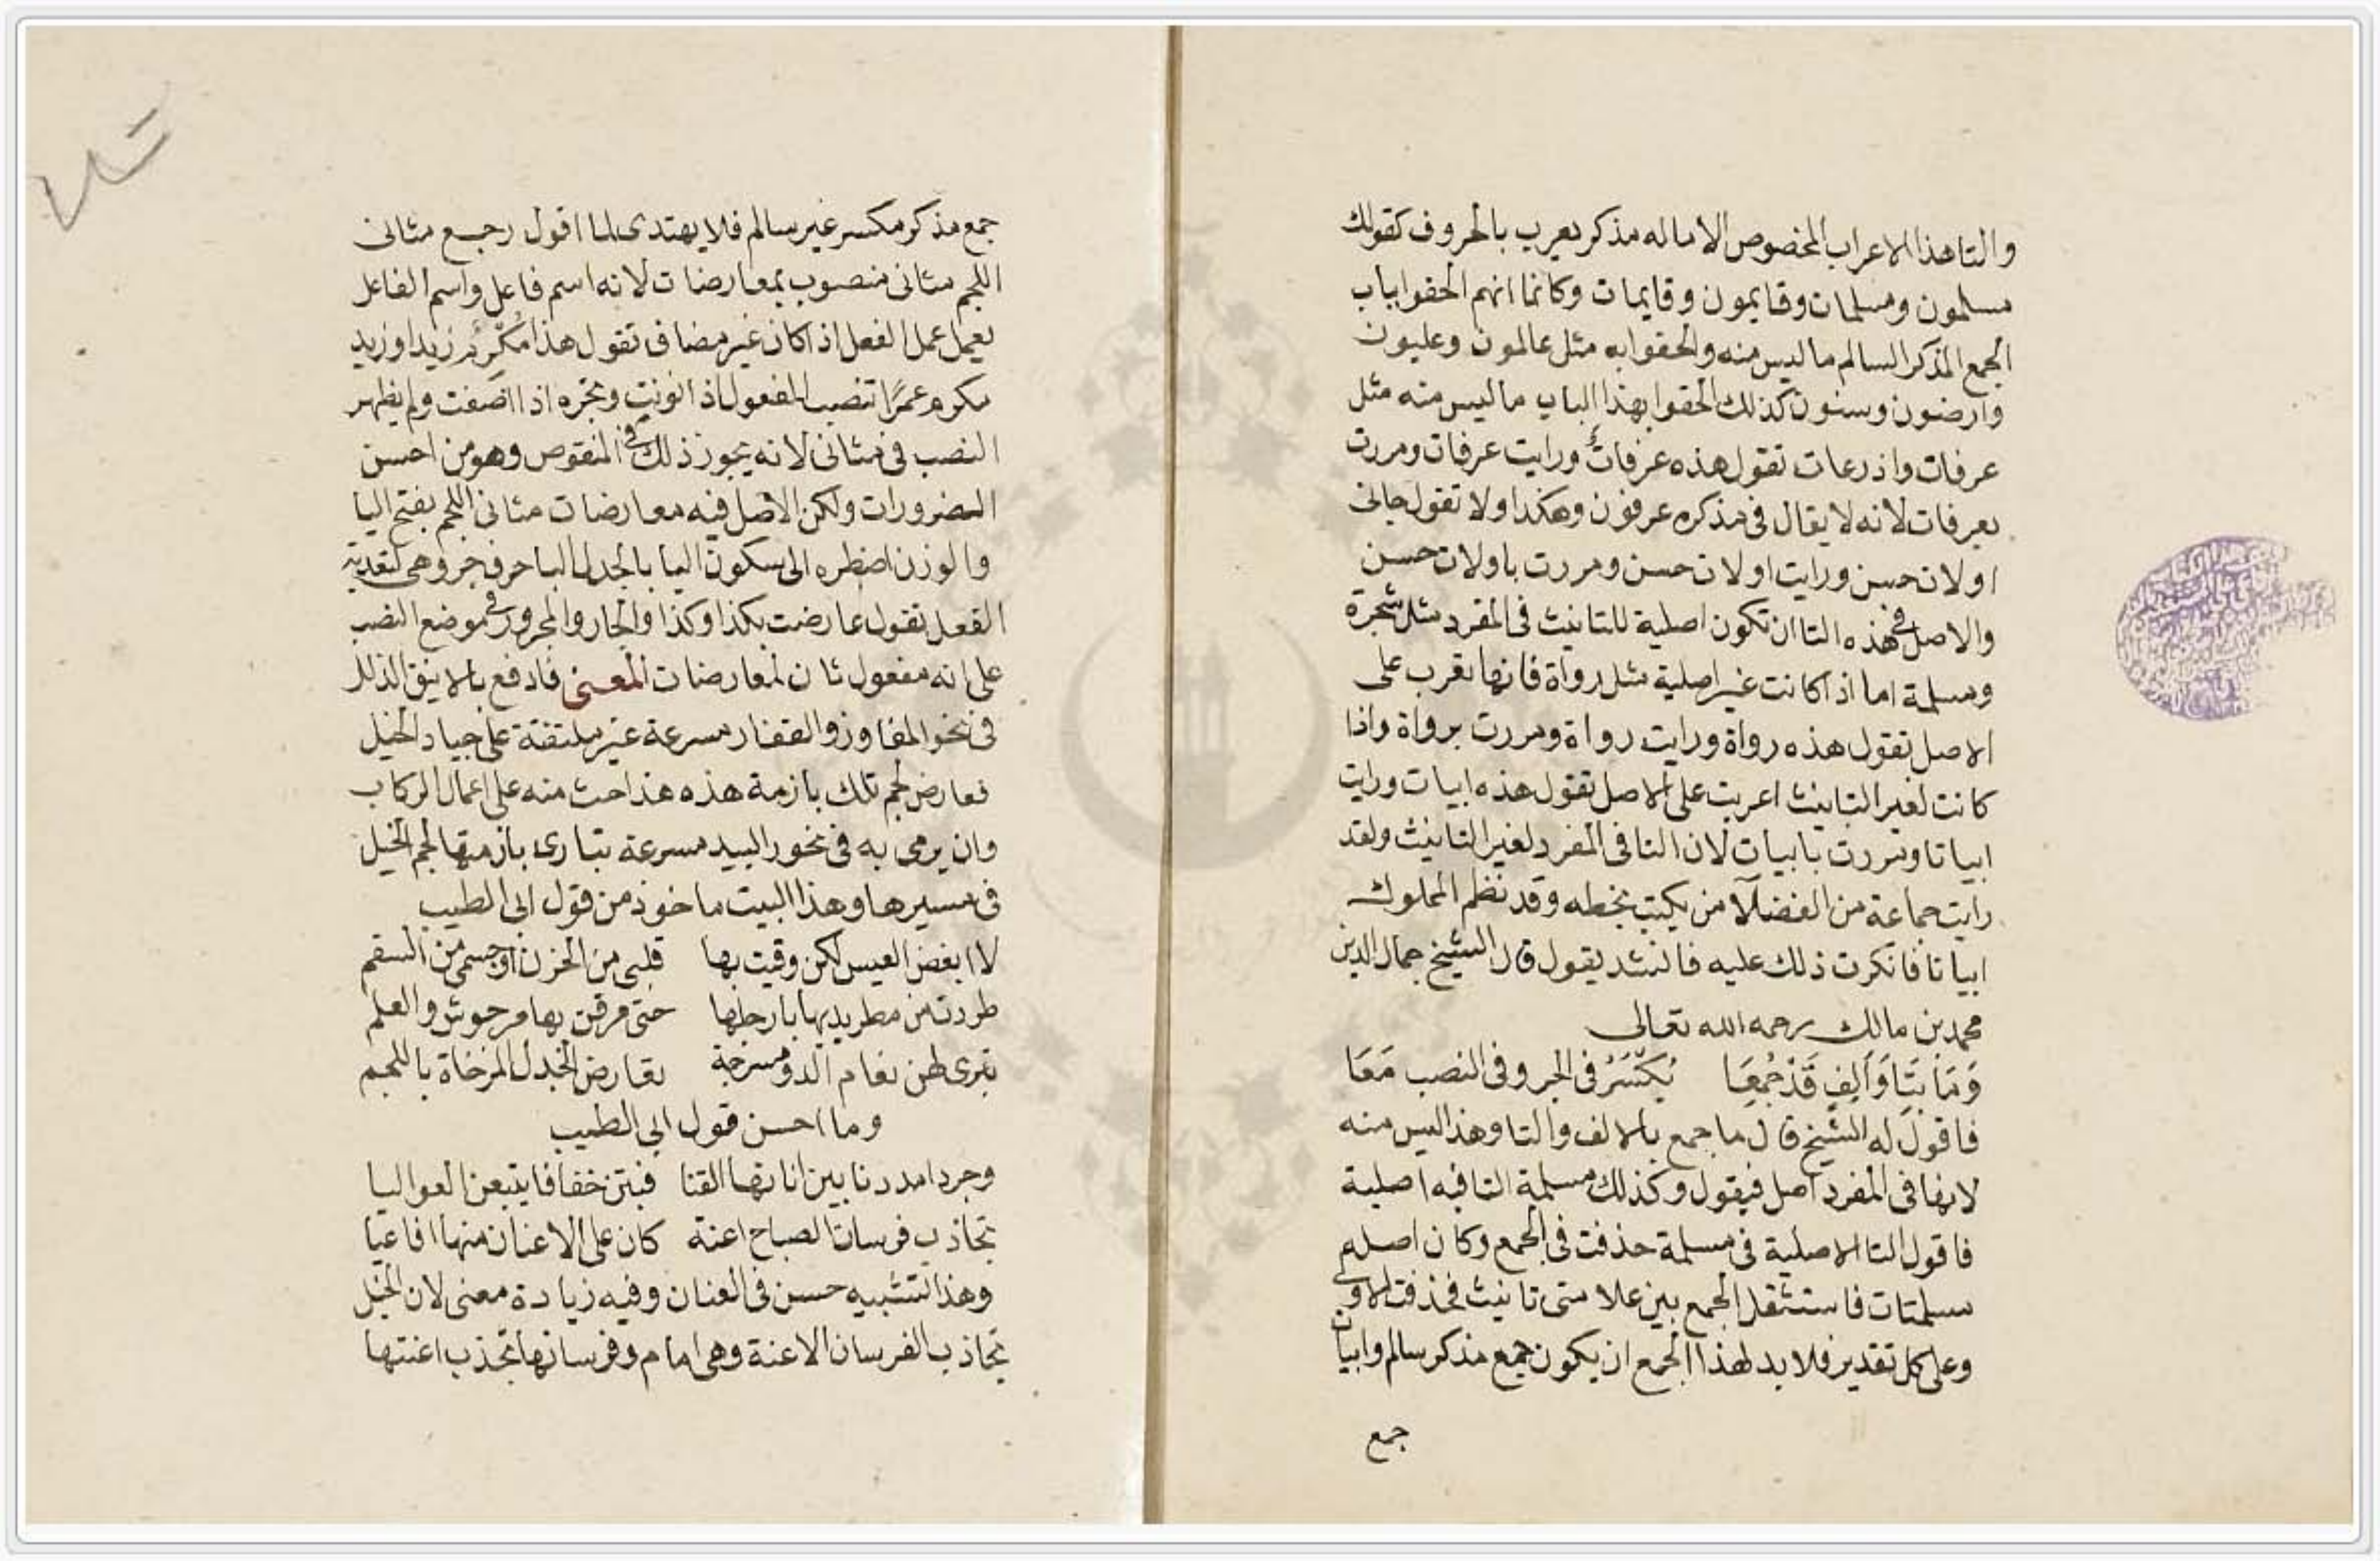 والتا هذا الاعراب المخصوص الا ماله مذكر يعرب بالحروف كقولك
مسلمون ومسلمات وقايمون وقايمات وكانما انهم الحقوا بباب
الجمع المذكر السالم ما ليس منه والحقوا به مثل عالمون وعليون
وارضون وسنون كذلك الحقوا بهذا الباب ما ليس منه مثل
عرفات واذرعات تقول هذه عرفات ورايت عرفات ومررت
بعرفات لانه لا يقال في مذكره عرفون وهكذا ولا تقول جاني
اولات حسن ورايت اولات حسن ومررت باولات حسن
والاصل في هذه التا ان تكون اصلية للتانيث في المفرد مثل شجرة
ومسلمة اما اذا كانت غير اصلية مثل رواة فانها تعرب على
الاصل تقول هذه رواة ورايت رواة ومررت برواة واذا
كانت لغير التانيث اعربت على الاصل تقول هذه ابيات ورايت
ابياتا ومررت بابيات لان التا في المفرد لغير التانيث ولقد
رايت جماعة من الفضلآ من يكتب بخطه وقد نظم المملوك
ابياتا فانكرت ذلك عليه فانشد يقول قال الشيخ جمال الدين
محمد بن مالك رحمه الله تعالى
وَمَا بِتَا وَأَلِفٍ قَدْ جُمِعَا يُكَسَّرُ في الجر وفي النصب مَعَا
فاقول له الشيخ قال ما جمع بالالف والتا وهذا ليس منه
لانها في المفرد اصل فيقول وكذلك مسلمة التا فيه اصلية
فاقول التا الاصلية في مسلمة حذفت في الجمع وكان اصله
مسلمتات فاستثقل الجمع بين علامتى تانيث فحذفت الاولى
وعلى كل تقدير فلا بد لهذا الجمع ان يكون جمع مذكر سالم وابيات
جمع
جمع مذكر مكسر غير سالم فلا يهتدى لما اقول رجع مثاني
اللجم مثاني منصوب بمعارضات لانه اسم فاعل واسم الفاعل
يعمل عمل الفعل اذا كان غير مضاف تقول هذا مُكْرِمٌ زيدا وزيد
مكرم عمرًا تنصب المفعول اذا نونت وتجره اذا اضفت ولم يظهر
النصب في مثاني لانه يجوز ذلك في المنقوص وهو من احسن
الضرورات ولكن الاصل فيه معارضات مثاني اللجم بفتح اليا
والوزن اضطره الى سكون اليا بالجدل البا حرف جر وهي لتعدية
الفعل تقول عارضت بكذا وكذا والجار والمجرور في موضع النصب
على انه مفعول ثان لمعارضات المعنى فادفع بالاينق الذلل
في نحور المفاوز والقفار مسرعة غير ملتفتة على جياد الخيل
فعارض لجم تلك بازمة هذه هذا حث منه على اعمال الركاب
وان يرمي به في نحور البيد مسرعة تبارى بازمتها لجم الخيل
في مسيرها وهذا البيت ماخوذ من قول ابي الطيب
لا ابغض العيس لكن وقيت بها قلبي من الحزن او جسمي من السقم
طردت من مصر ايديها بارجلها حتى مرقن بها من جوش والعلم
تبرى لهن نعام الدو مسرجة تعارض الجدل المرخاة باللجم
وما احسن قول ابي الطيب
وجردا مددنا بين اذانها القنا فبتن خفافا يتبعن العواليا
تجاذب فرسان الصباح اعنة كان على الاعناق منها افاعيا
وهذا التشبيه حسن في العنان وفيه زيادة معنى لان الخيل
تجاذب الفرسان الاعنة وهي امام وفرسانها تجذب اعنتها